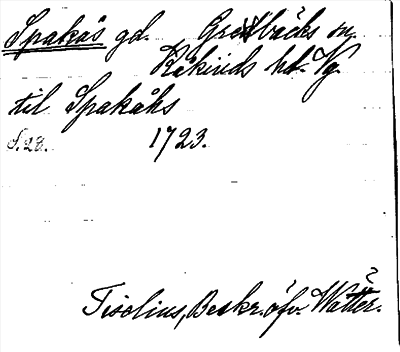 Spakås gd. Grevbäcks sn.
Kåkinds hd. Vg.
til Spakåhs
S. 28. 1723.
Tiselius, Beskr. öfv. Wätter.